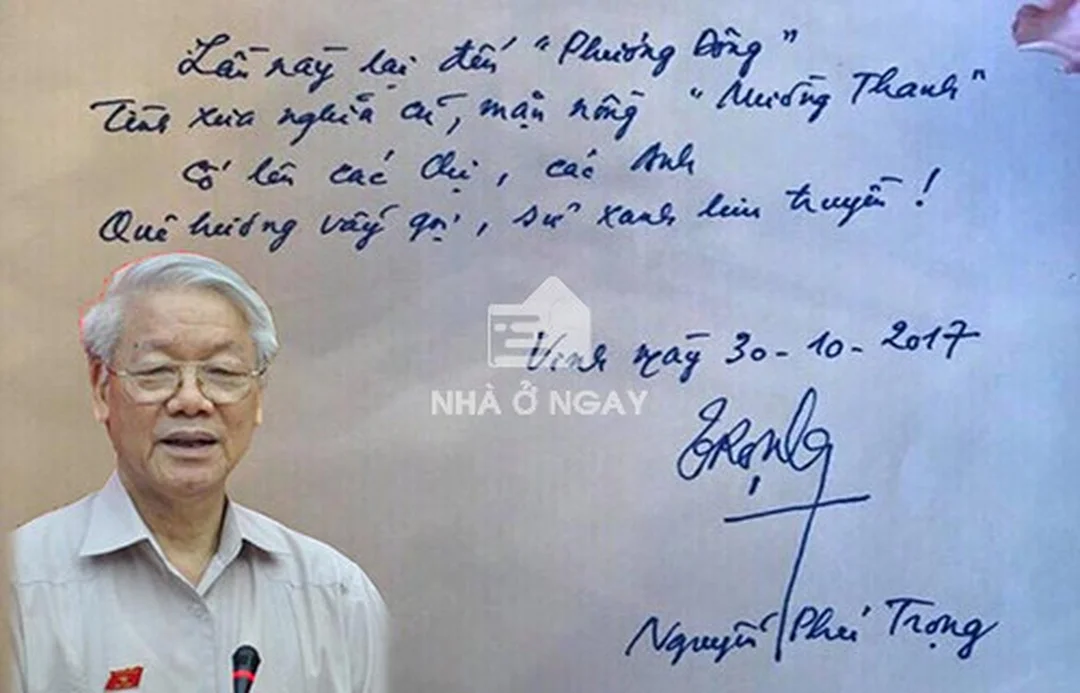 Lần này lại đến "Phương Đông"
Tình xưa nghĩa cũ, mặn nồng "Mường Thanh"
Cố lên các Chị, các Anh
Quê hương vẫy gọi, sử xanh lưu truyền!
Vinh ngày 30-10-2017
NHÀ Ở NGAY
TRỌNG
Nguyễn Phú Trọng